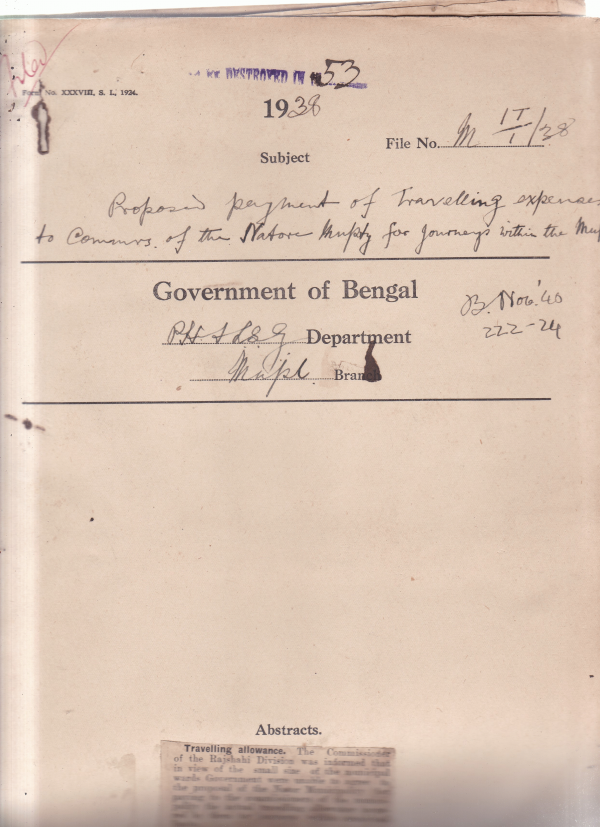 DESTROYED IN 53
Form No. XXXVIII, S. I., 1924.
1938
File No. M 1T/1/38
Subject
Proposed payment of Travelling expenses
to Commrs. of the Natore Mupty for journeys within the
Government of Bengal
B. Nov. '40
222-24
PH & LSG Department
Mupl Branch
Abstracts.
Travelling allowance. The Commissioner
of the Rajshahi Division was informed that
in view of the small size of the municipal
wards Government were unable to
the proposal of the